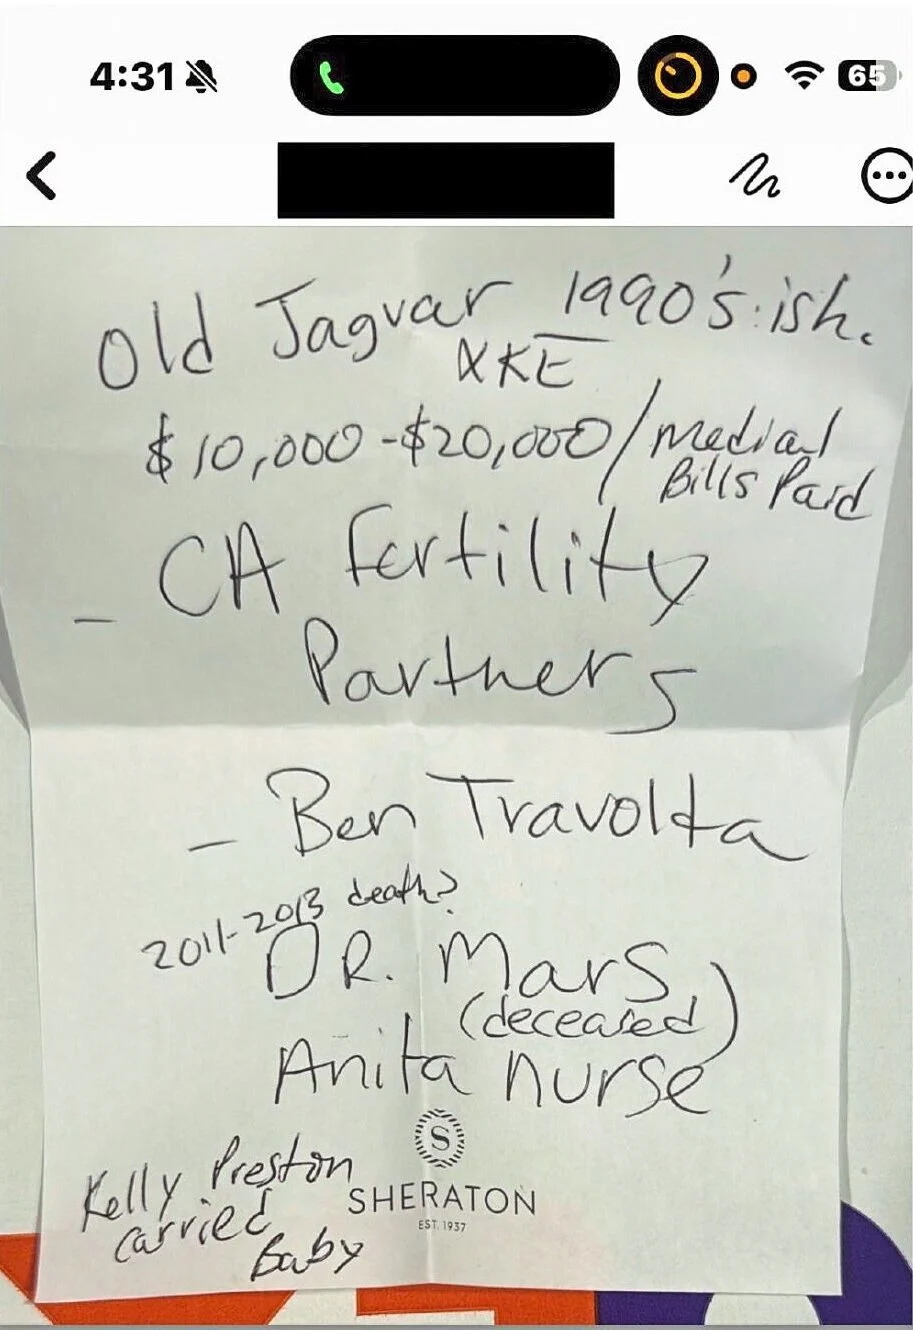 4:31
65
Old Jaguar 1990's ish.
XKE
$10,000-$20,000/Medical
Bills Paid
- CA Fertility
Partners
- Ben Travolta
2011-2013 death?
DR. Mars
(deceased)
Anita nurse
Kelly Preston
carried
Baby
S
SHERATON
EST. 1937